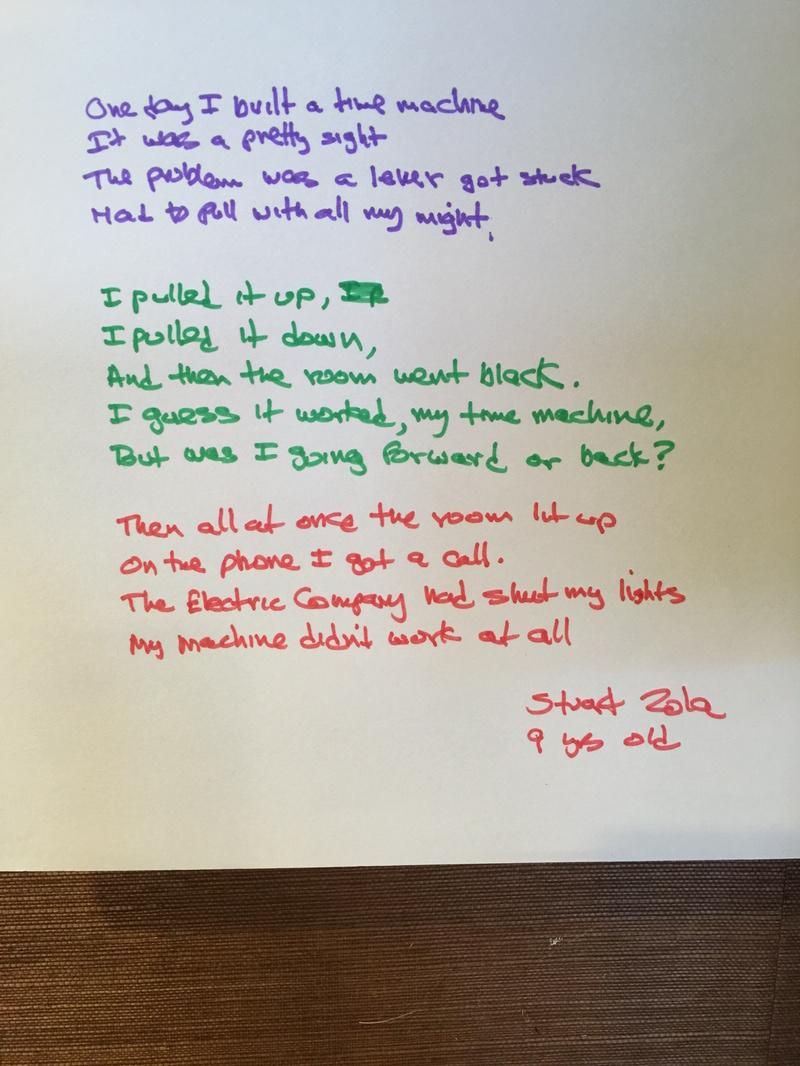 One day I built a time machine
It was a pretty sight
The problem was a lever got stuck
Had to pull with all my might.
I pulled it up,
I pulled it down,
And then the room went black.
I guess it worked, my time machine,
But was I going forward or back?
Then all at once the room lit up
On the phone I got a call.
The Electric Company had shut my lights
My machine didn't work at all
Stuart Zola
9 yrs old